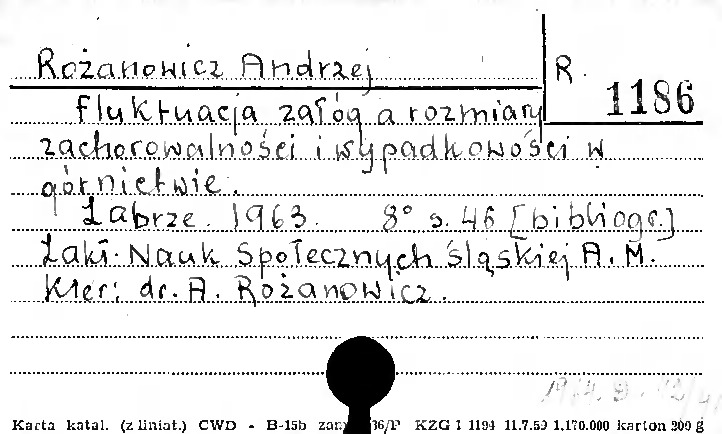 Rożanowicz Andrzej
R. 1186
Fluktuacja załóg a rozmiary
zachorowalności i wypadkowości w
górnictwie.
Zabrze. 1963. 8° s. 46 [bibliogr.]
Zakł. Nauk Społecznych Śląskiej A. M.
Kier: dr. A. Rożanowicz.
1964. D.
Karta katal. (z liniat.) CWD - B-15b 36/P KZG 1 1194 11.7.59 1.170.000 karton 200 g